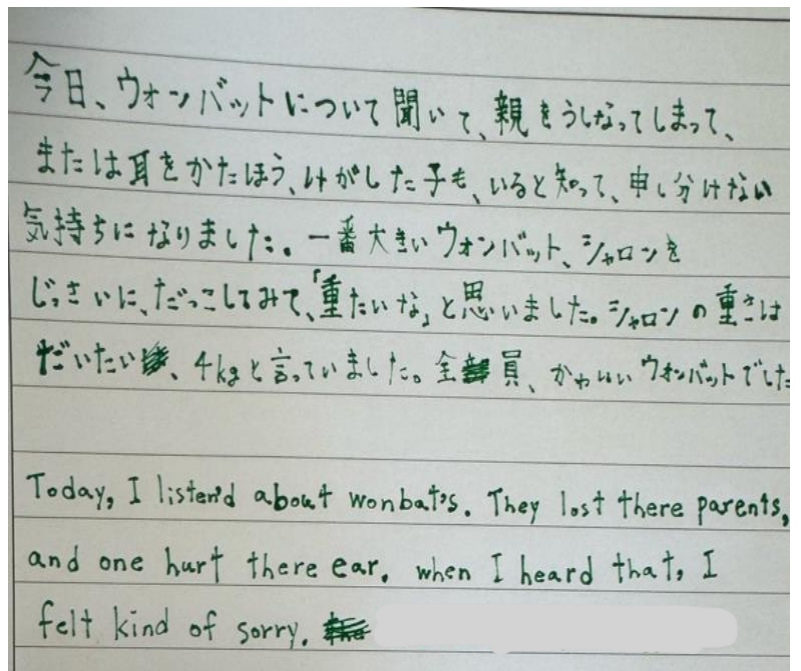 今日、ウォンバットについて聞いて、親をうしなってしまって、
または耳をかたほう、けがした子も、いると知って、申し分けない
気持ちになりました。一番大きいウォンバット、シャロンを
じっさいに、だっこしてみて、「重たいな」と思いました。シャロンの重さは
だいたい、4kgと言っていました。全員、かわいいウォンバットでした
Today, I listen'd about wonbat's. They lost there parents,
and one hurt there ear. when I heard that, I
felt kind of sorry.